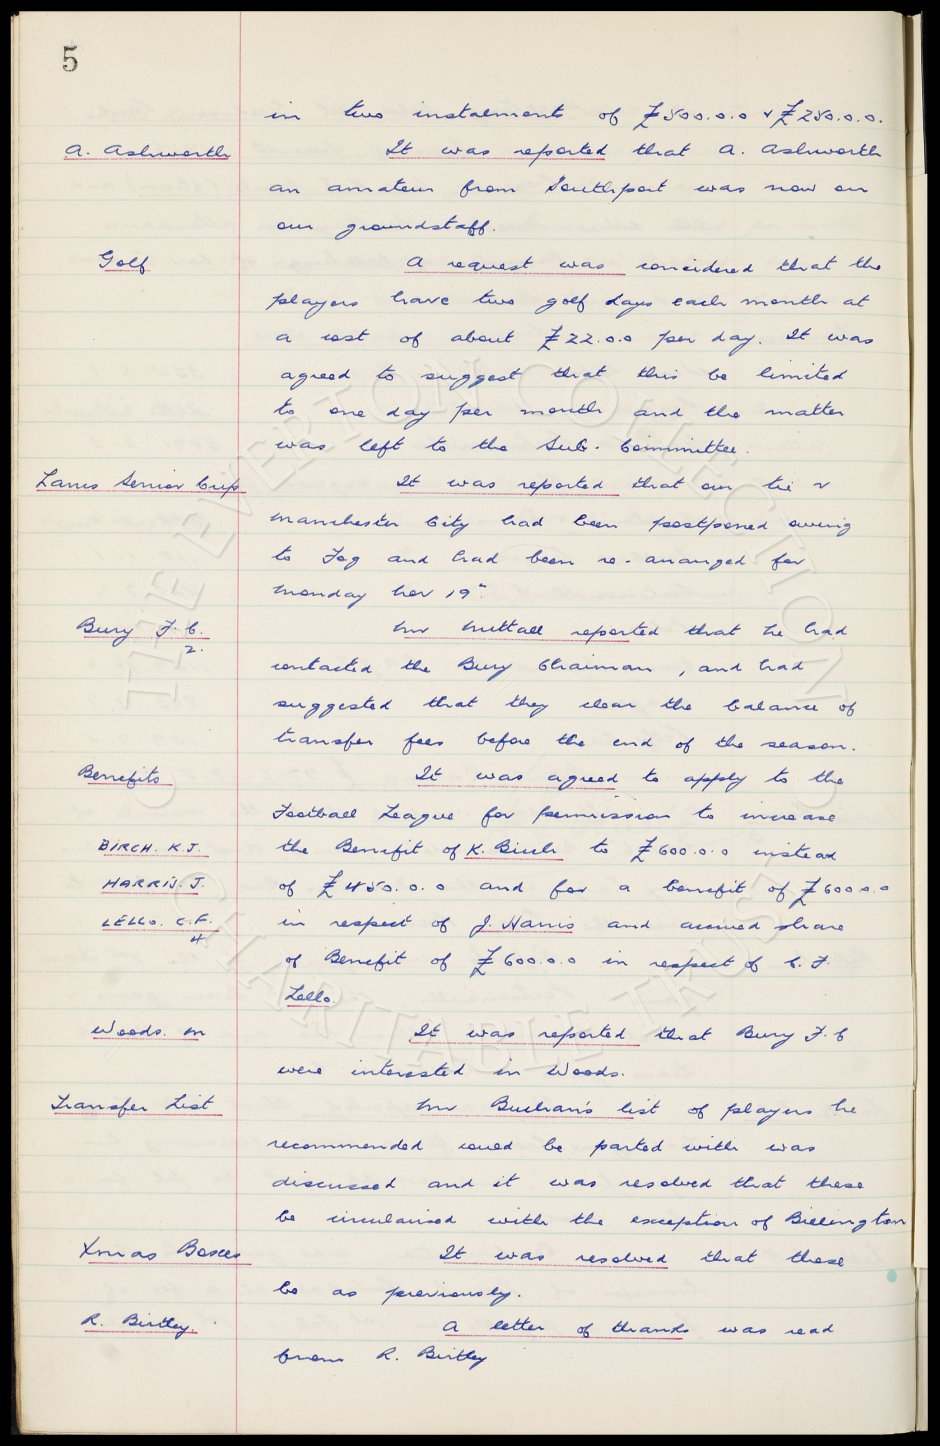 5
in two instalments of £500.0.0 & £250.0.0.
A. Ashworth It was reported that A. Ashworth
an amateur from Southport was now on
our groundstaff.
Golf A request was considered that the
players have two golf days each month at
a cost of about £22.0.0 per day. It was
agreed to suggest that this be limited
to one day per month and the matter
was left to the Sub. Committee.
Lancs Senior Cup It was reported that our tie v
Manchester City had been postponed owing
to Fog and had been re-arranged for
Monday Nov 19"
Bury F.C. Mr Nuttall reported that he had
2.
contacted the Bury Chairman, and had
suggested that they clear the balance of
transfer fees before the end of the season.
Benefits It was agreed to apply to the
Football League for permission to increase
BIRCH. K.J. the Benefit of K. Birch to £600.0.0 instead
HARRIS. J. of £450.0.0 and for a benefit of £600.0.0
LELLO. C.F. in respect of J. Harris and accrued share
4.
of Benefit of £600.0.0 in respect of C. F.
Lello.
Woods. M It was reported that Bury F.C
were interested in Woods.
Transfer List Mr Buchan's list of players he
recommended could be parted with was
discussed and it was resolved that these
be circularised with the exception of Billington
Xmas Boxes It was resolved that these
be as previously.
R. Birtley. A letter of thanks was read
from R. Birtley
THE EVERTON COLLECTION
CHARITABLE TRUST